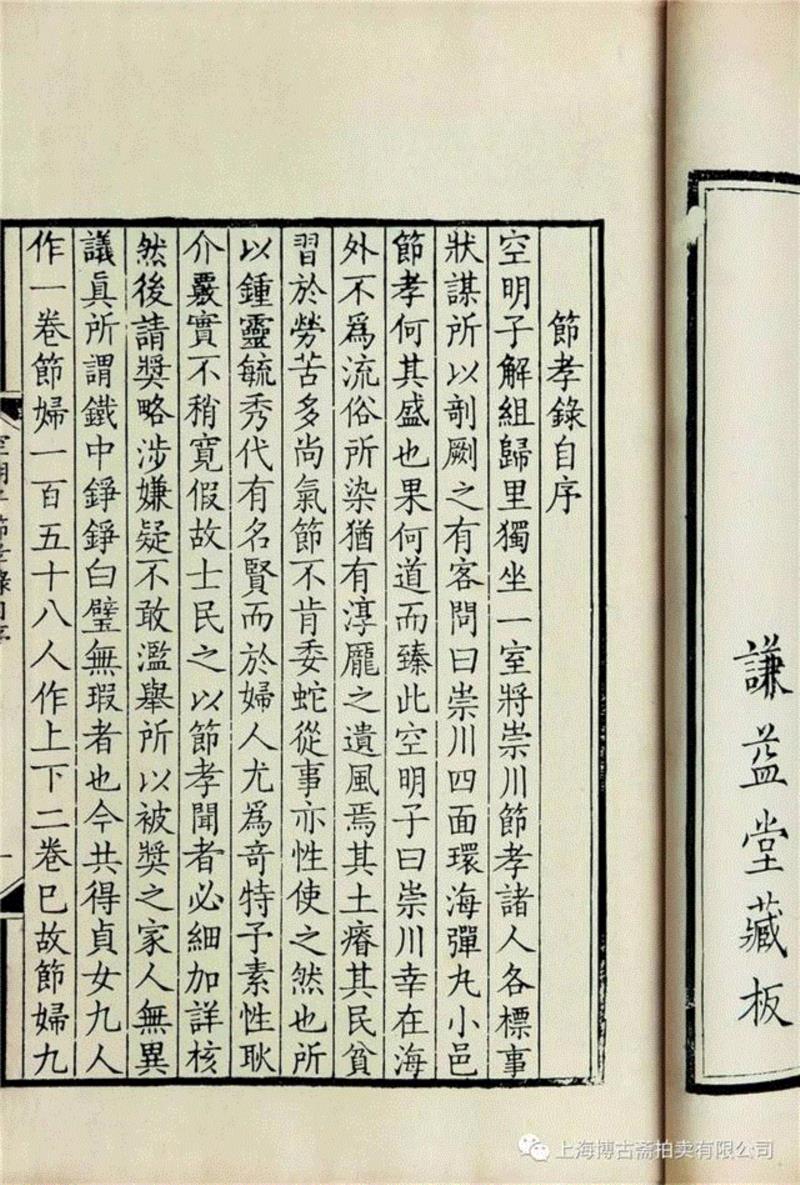 謙益堂藏板
節孝錄自序
空明子解組歸里獨坐一室將崇川節孝諸人各標事
狀謀所以剞劂之有客問曰崇川四面環海彈丸小邑
節孝何其盛也果何道而臻此空明子曰崇川幸在海
外不爲流俗所染猶有淳龐之遺風焉其土瘠其民貧
習於勞苦多尚氣節不肯委蛇從事亦性使之然也所
以鍾靈毓秀代有名賢而於婦人尤爲奇特予素性耿
介覈實不稍寬假故士民之以節孝聞者必細加詳核
然後請獎略涉嫌疑不敢濫舉所以被獎之家人無異
議眞所謂鐵中錚錚白璧無瑕者也今共得貞女九人
作一卷節婦一百五十八人作上下二卷巳故節婦九
空明子節孝錄自序
一
上海博古斋拍卖有限公司